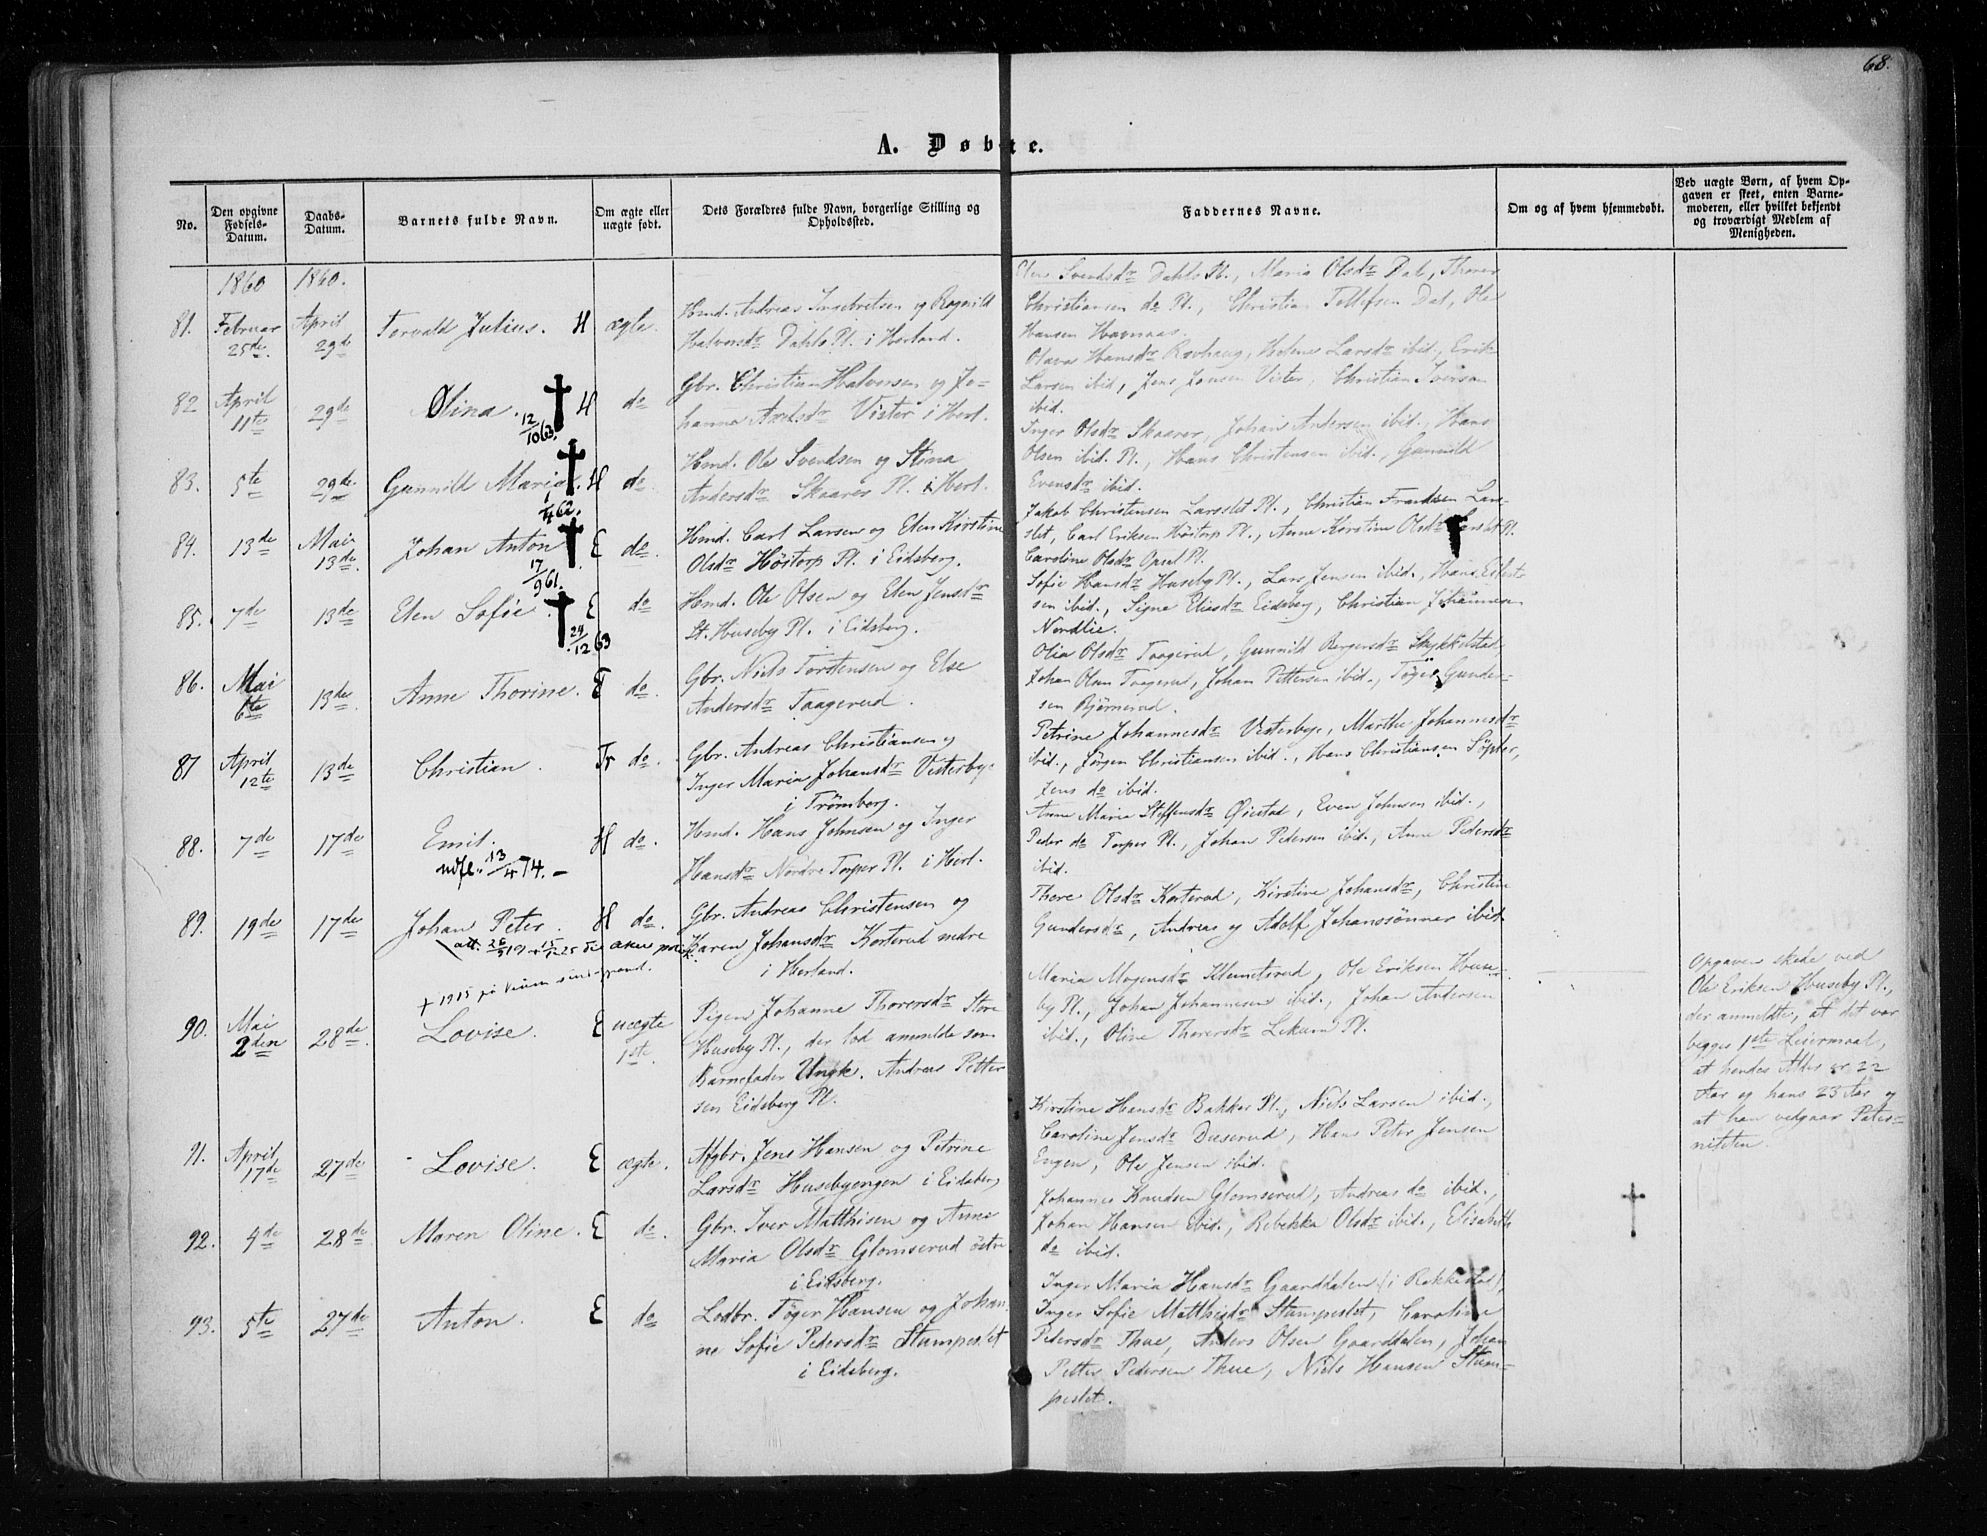 68.
A. Døbte.
No.
Den opgivne Fødsels-Datum.
Daabs-Datum.
Barnets fulde Navn.
Om ægte eller uægte født.
Dets Forældres fulde Navn, borgerlige Stilling og Opholdssted.
Faddernes Navne.
Om og af hvem hjemmedøbt.
Ved uægte Børn, af hvem Op-
gaven er skeet, enten Barne-
moderen, eller hvilket bekjendt
og troværdigt Medlem af
Menigheden.
1860 1860.
81. Februar 25de. April 29de Torvald Julius. H ægte.
Hmd. Andreas Ingebretsen og Ragnild
Halvorsdr Dahle Pl. i Herland.
Svendsdr Dahle Pl., Maria Olsdr Dal, Thorer
Christiansen do Pl., Christian Tellefsen Dal, Ole
Hansen Havnaas.
82 April 11te 29de Olina. 12/10 63. H do
Gbr. Christian Halvorsen og Jo-
hanna Axelsdr Vister i Herl.
Olava Hansdr Rovhaug, Helene Larsdr ibid., Erik
Larsen ibid, Jens Jensen Vister, Christian Iversen
ibid.
83. 5te 29de Gunnild Maria. 1/4 62. H do
Hmd. Ole Svendsen og Stina
Andersdr Skaarer Pl. i Herl.
Inger Olsdr Skaarer, Johan Andersen ibid., Hans
Olsen ibid. Pl., Hans Christensen ibid., Gunnild
Evensdr ibid.
84. 13de Mai 13de. Johan Anton 17/9 61. E do.
Hmd. Carl Larsen og Elen Kirstine
Olsdr Höitorp Pl. i Eidsberg.
Jakob Christensen Larsslet Pl., Christian Frandsen Lars-
slet, Carl Eriksen Höitorp Pl., Anne Kirstine Olsdr Larslet Pl.
Caroline Olsdr Opsal Pl.
85. 7de 13de Elen Sofie. 24/12 63 E do
Hmd. Ole Olsen og Elen Jensdr
St. Huseby Pl. i Eidsberg.
Sofie Hansdr Huseby Pl., Lars Jensen ibid., Hans
sen ibid., Signe Eliesdr Eidsberg, Christian Johannesen
Nordlie.
86. Mai 6te 13de. Anne Thorine. E do.
Gbr. Niels Torstensen og Else
Andersdr Taagerud.
Olia Olsdr Taagerud, Gunnild Borgersdr Skykkelstad
Johan Olsen Taagerud, Johan Pettersen ibid., Töger Gunder-
sen Bjørnerud.
87 April 12te 13de Christian. Tr do.
Gbr. Andreas Christiansen og
Inger Maria Johansdr Vesterbye
i Trömborg.
Petrine Johannesdr Vesterbye, Marthe Johannesdr
ibid., Jørgen Christiansen ibid., Hans Christiansen Söpler,
Jens do ibid.
88. 7de 17de Emil. H do.
udfl: 13/4 74. –
Hmd. Hans Johnsen og Inger
Hansdr Nordre Torper Pl. i Herl.
Anne Maria Steffensdr Øiestad, Even Johnsen ibid.,
Peder do Torper Pl., Johan Pedersen ibid., Anne Pedersdr
ibid.
89. 19de 17de Johan Peter. H do.
† 1915 på
Gbr. Andreas Christensen og
Karen Johansdr Korterud nedre
i Herland.
Thore Olsdr Korterud, Kirstine Johansdr, Christine
Gundersdr, Andreas og Adolf Johanssønner ibid.
90. Mai 2den 28de. Lovise. E uægte 1ste.
Pigen Johanne Thorersdr Store
Huseby Pl., der lod anmelde som
Barnefader Ungk. Andreas Petter
sen Eidsberg Pl.
Maria Mogensdr Klemetsrud, Ole Eriksen Huse-
by Pl., Johan Johannesen ibid., Johan Andersen
ibid., Oline Thorersdr Lekum Pl.
Opgaven skede ved
Ole Eriksen Huseby Pl.,
der anmeldte, at det var
begges 1ste Leiermaal,
at hendes Alder er 22
Aar og hans 23 Aar og
at han vedgaar Pater-
niteten.
91. April 17de 27de Lovise. E ægte.
Afgbr. Jens Hansen og Petrine
Larsdr Husebyengen i Eidsberg
Kirstine Hansdr Bakker Pl., Niels Larsen ibid.,
Caroline Jensdr Duserud, Hans Peter Jensen
Engen, Ole Jensen ibid.
92. 4de 28de Maren Oline. E do.
Gbr. Iver Matthisen og Anne
Maria Olsdr Glomserud östre
i Eidsberg.
Johannes Knudsen Glomserud, Andreas do ibid.,
Johan Hansen ibid., Rebekka Olsdr ibid., Elisabeth
do ibid.
93. 5te 27de Anton. E do
Ledbr. Töger Hansen og Johan-
ne Sofie Pedersdr Stumpeslet
i Eidsberg.
Inger Maria Hansdr Gaarddalen (i Rakkestad),
Inger Sofie Matthisdr Stumpeslet, Caroline
Pedersdr Thue, Anders Olsen Gaarddalen, Johan
Petter Pedersen Thue, Niels Hansen Stum-
peslet.